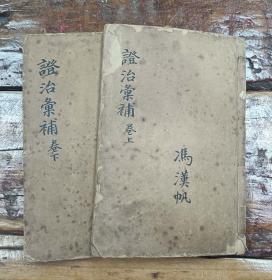 證治彙補 卷上
馮漢帆
證治彙補 卷下